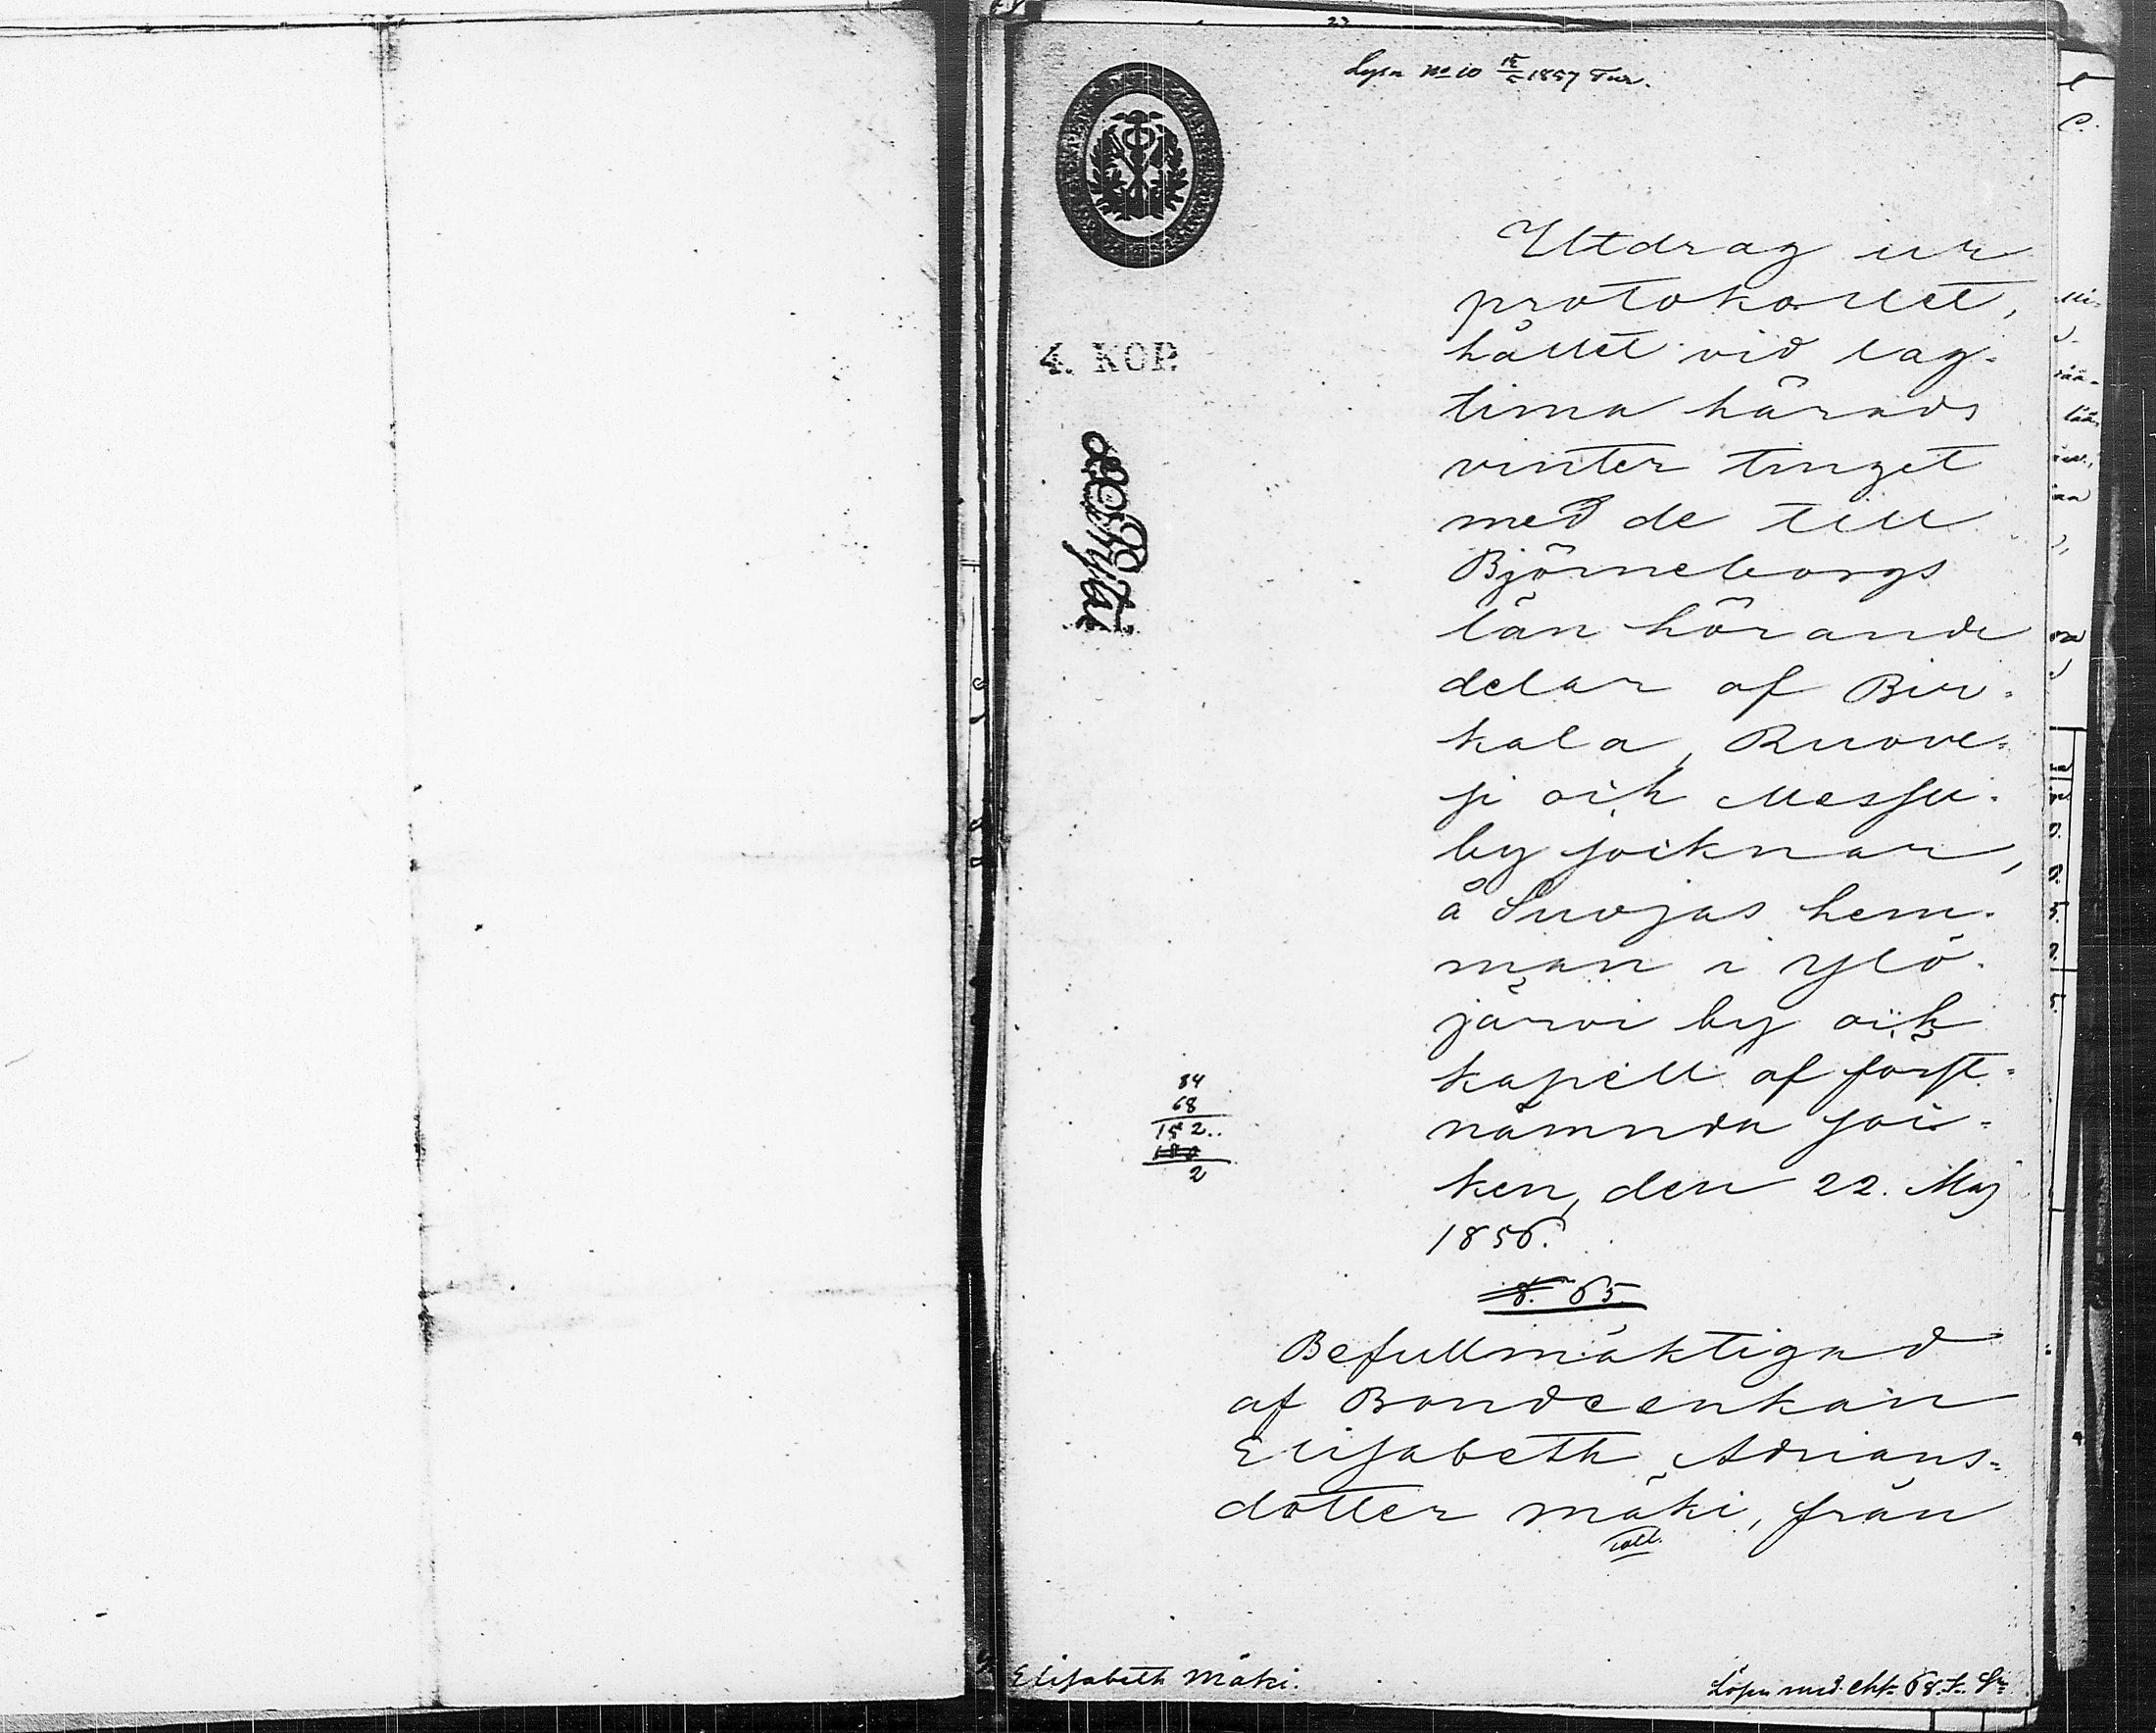 Lysn No 10 15/5 1857 Tur.
4. KOP.
Utdrag ur
protokollet,
hållet vid lag-
tima härads
vinter tinget
med de till
Björneborgs
län hörande
delar af Bir-
kala, Ruove-
si och Messu-
by socknar,
å Suojas hem-
man i Ylö-
järvi by och
kapell af först-
nämnda soc-
ken, den 22. Maj
1856.
§. 65.
84
68
152
2
Befullmäktigad
af Bondeenkan
Elisabeth Adrians-
dotter Mäki, från
Elisabeth Mäki.
Lösen med